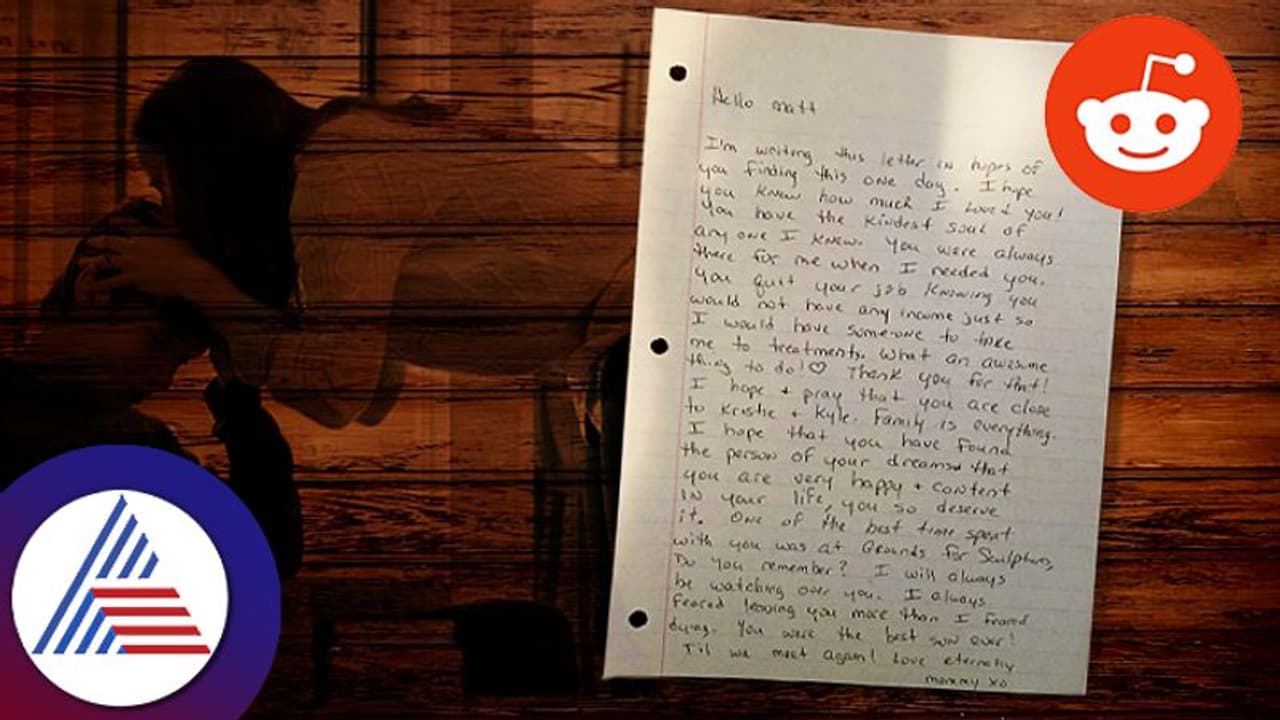 Hello Matt
I'm writing this letter in hopes of
you finding this one day. I hope
you knew how much I loved you!
You have the kindest soul of
anyone I knew. You were always
there for me when I needed you.
You quit your job knowing you
would not have any income just so
I would have some-one to take
me to treatments. What an awesome
thing to do! ♡ Thank you for that!
I hope + pray that you are close
to Kristie + Kyle. Family is everything.
I hope that you have found
the person of your dreams + that
you are very happy + content
in your life, you so deserve
it. One of the best time spent
with you was at Grounds for Sculptures,
Do you remember? I will always
be watching over you. I always
feared leaving you more than I feared
dying. You were the best son ever!
Til we meet again! Love eternally
mommy xo